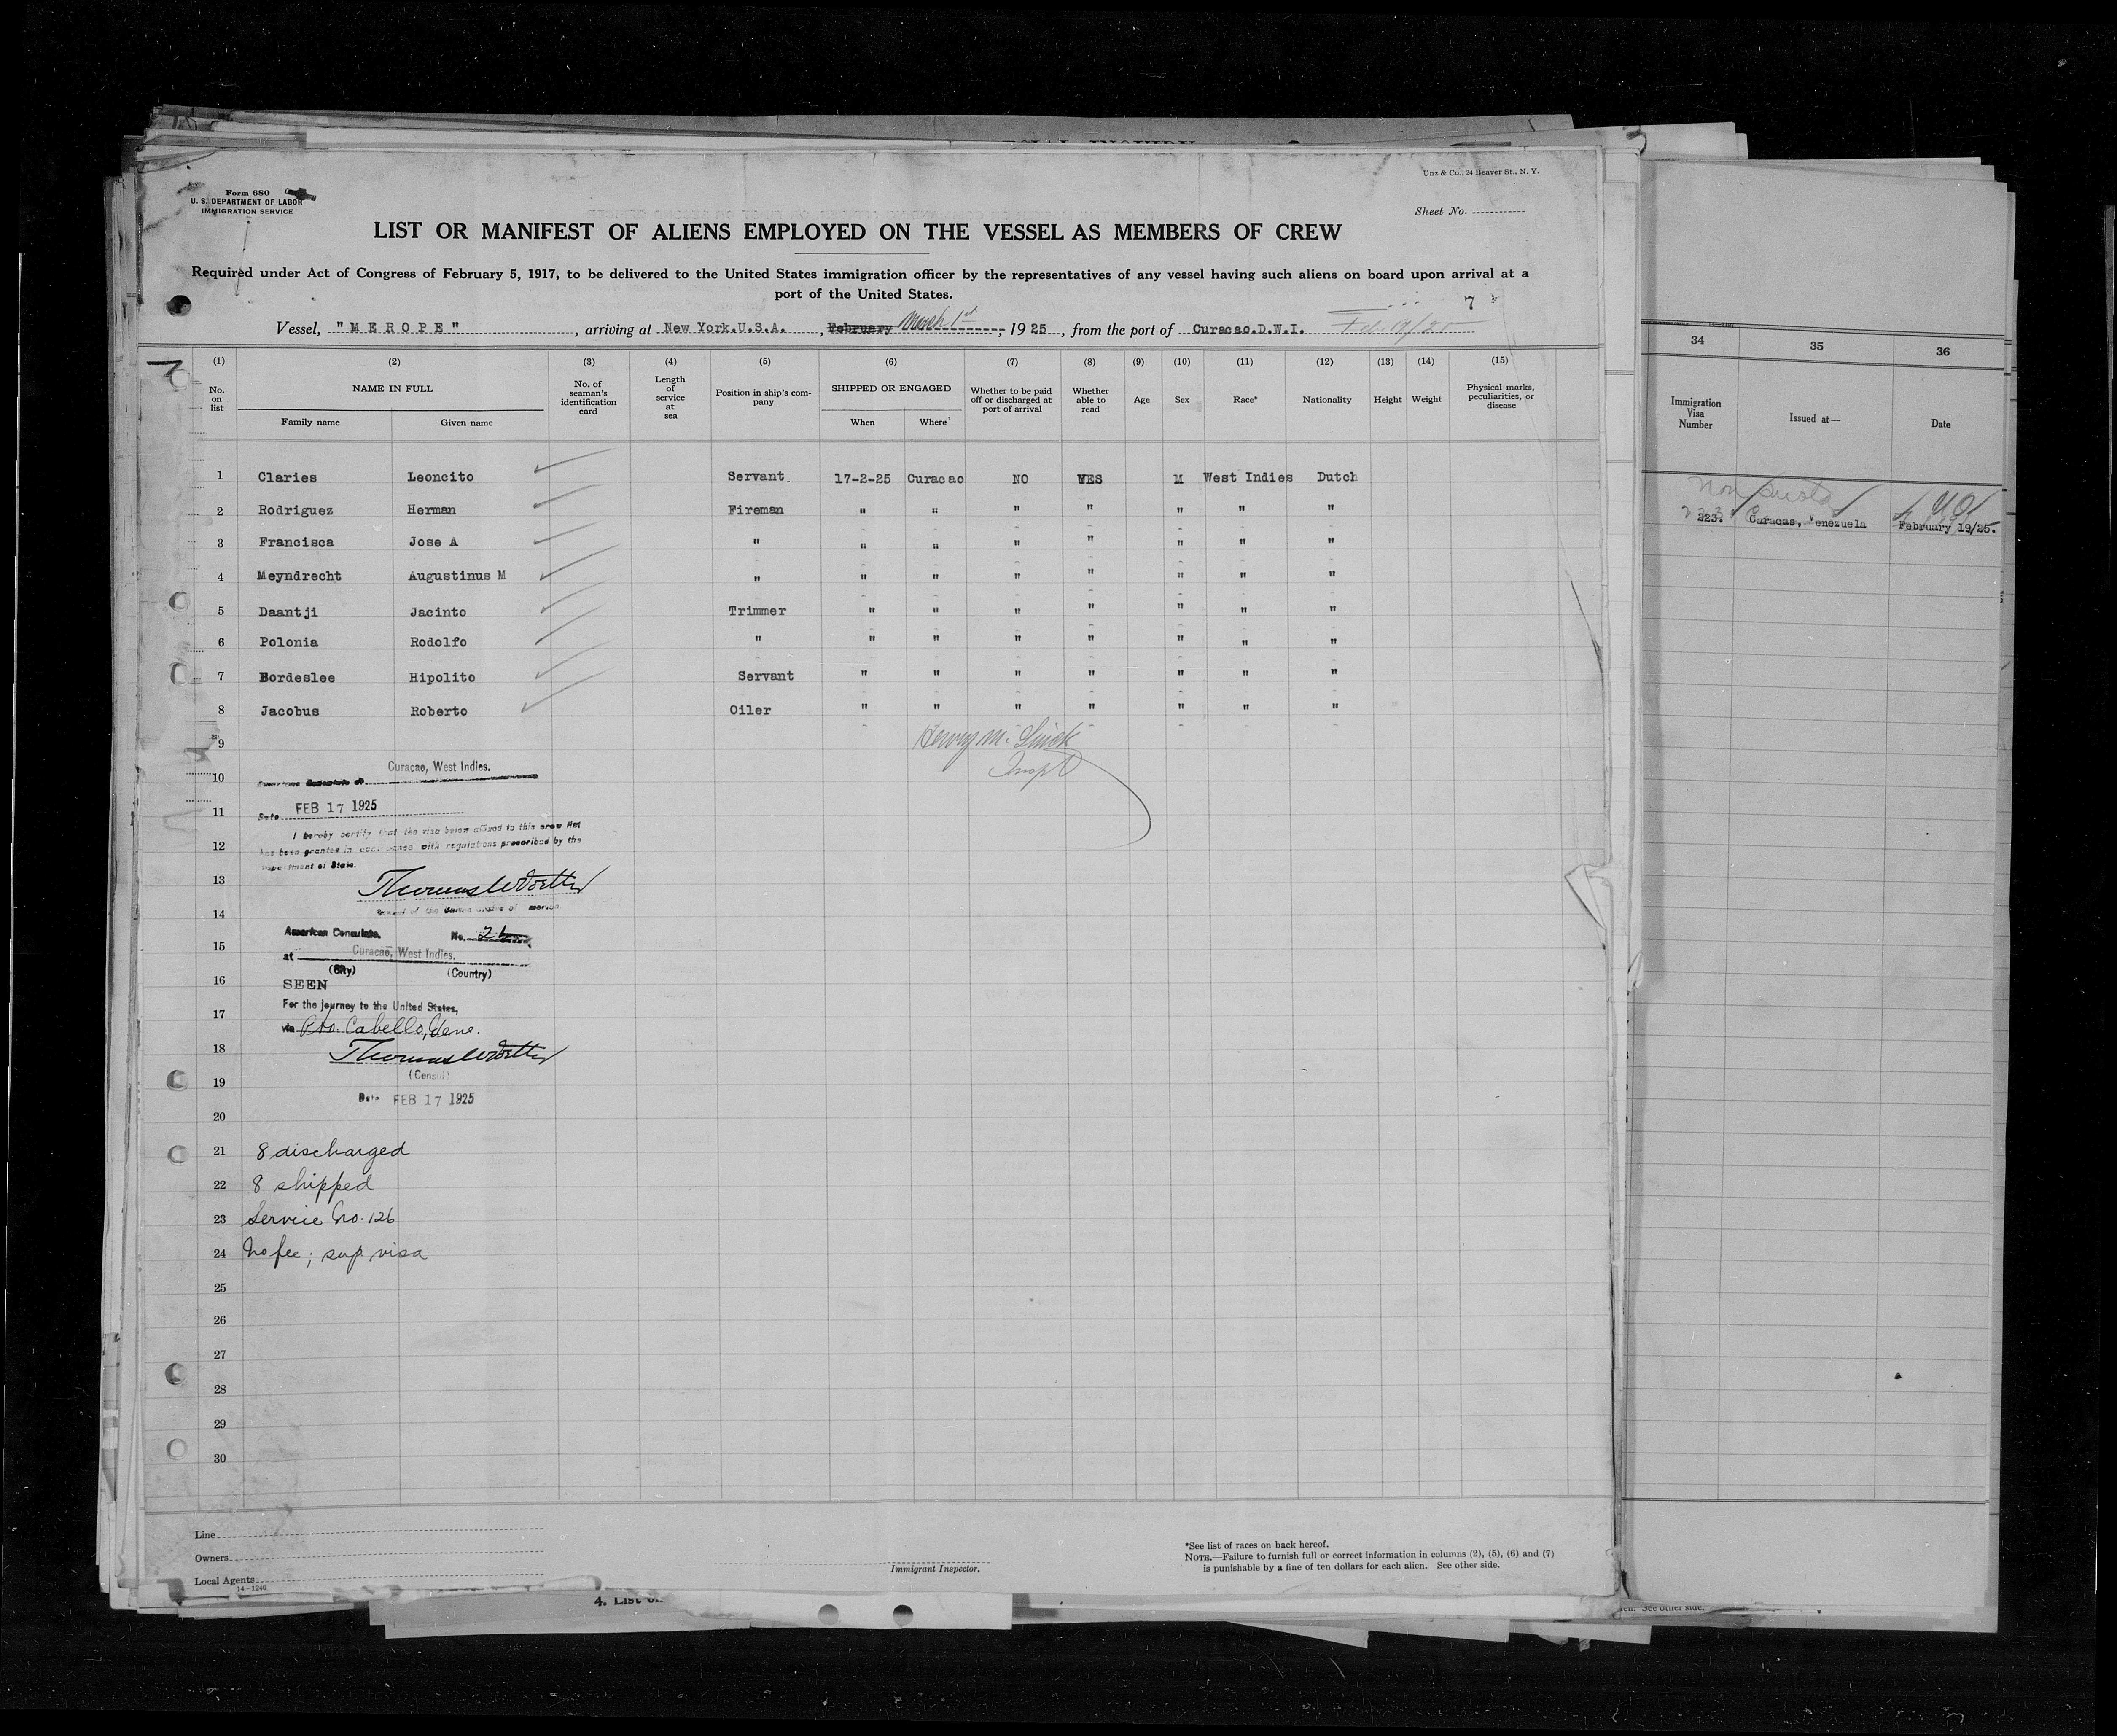 Form 680
U. S. DEPARTMENT OF LABOR
IMMIGRATION SERVICE
Unz & Co., 24 Beaver St., N. Y.
Sheet No.
LIST OR MANIFEST OF ALIENS EMPLOYED ON THE VESSEL AS MEMBERS OF CREW
Required under Act of Congress of February 5, 1917, to be delivered to the United States immigration officer by the representatives of any vessel having such aliens on board upon arrival at a
port of the United States.
7
Vessel, "MEROPE", arriving at New York.U.S.A., February March 1st, 1925, from the port of Curacao.D.W.I.
(1) (2) (3) (4) (5) (6) (7) (8) (9) (10) (11) (12) (13) (14) (15)
No. on list
NAME IN FULL
Family name Given name
No. of seaman's identification card
Length of service at sea
Position in ship's company
SHIPPED OR ENGAGED
When Where
Whether to be paid off or discharged at port of arrival
Whether able to read
Age
Sex
Race*
Nationality
Height
Weight
Physical marks, peculiarities, or disease
1 Claries Leoncito Servant 17-2-25 Curacao NO YES M West Indies Dutch
2 Rodriguez Herman Fireman " " " " " " "
3 Francisca Jose A " " " " " " " "
4 Meyndrecht Augustinus M " " " " " " " "
5 Daantji Jacinto Trimmer " " " " " " "
6 Polonia Rodolfo " " " " " " " "
7 Bordeslee Hipolito Servant " " " " " " "
8 Jacobus Roberto Oiler " " " " " " "
9
Inspt
10
Curaçao, West Indies.
11
Date FEB 17 1925
I hereby certify that the visa below affixed to this crew list
12
has been granted in accordance with regulations prescribed by the
Department of State.
13
14
American Consulate, No. 26
15
at Curacao, West Indies.
(City) (Country)
16
SEEN
For the journey to the United States,
17
via Pto. Cabello, Vene.
18
(Consul)
19
Date FEB 17 1925
20
21 8 discharged
22 8 shipped
23 Service No. 126
24 No fee; sup visa
25
26
27
28
29
30
Line
Owners
Local Agents
14-1240
Immigrant Inspector.
*See list of races on back hereof.
NOTE.—Failure to furnish full or correct information in columns (2), (5), (6) and (7)
is punishable by a fine of ten dollars for each alien. See other side.
34 35 36
Immigration Visa Number
Issued at—
Date
Non quota
223. Caracas, Venezuela February 19/25.
4. List of
See other side.